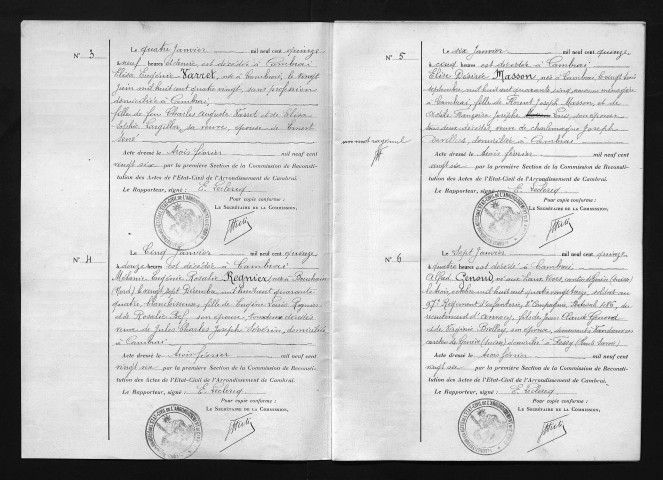 N° 3
Le quatre Janvier mil neuf cent quinze
à neuf heures du soir, est décédée à Cambrai
Elisa Eugénie Varret, née à Cambrai, le vingt
Juin mil huit cent quatre vingt, sans profession
domiciliée à Cambrai,
fille de feu Charles Auguste Varret et de Elisa
Sophie sa veuve, épouse de Ernest
Acte dressé le trois février mil neuf cent
vingt six par la première Section de la Commission de Reconsti-
tution des Actes de l'Etat-Civil de l'Arrondissement de Cambrai.
Le Rapporteur, signé : E. Leclercq
Pour copie conforme :
Le Secrétaire de la Commission,
N° 4
Le Cinq Janvier mil neuf cent quinze
à douze heures est décédée à Cambrai
Mélanie Eugénie Rosalie Regnier, née à Bouchain
(Nord) le vingt sept Décembre mil huit cent quarante
quatre, blanchisseuse, fille de Eugène Regnier
et de Rosalie son épouse, tous deux décédés
veuve de Jules Charles Joseph Séverin, domiciliée
à Cambrai
Acte dressé le trois février mil neuf cent
vingt six par la première Section de la Commission de Reconsti-
tution des Actes de l'Etat-Civil de l'Arrondissement de Cambrai.
Le Rapporteur, signé : E. Leclercq
Pour copie conforme :
Le Secrétaire de la Commission,
N° 5
Le six Janvier mil neuf cent quinze
à cinq heures est décédée à Cambrai
Elise Désirée Masson, née à Cambrai, le vingt trois
septembre mil huit cent quarante cinq, ménagère
à Cambrai, fille de Joseph Masson, et de
Françoise Josèphe son épouse
tous deux décédés, veuve de Charlemagne Joseph
domiciliée à Cambrai
un mot rayé nul
Acte dressé le trois février mil neuf cent
vingt six par la première Section de la Commission de Reconsti-
tution des Actes de l'Etat-Civil de l'Arrondissement de Cambrai.
Le Rapporteur, signé : E. Leclercq
Pour copie conforme :
Le Secrétaire de la Commission,
N° 6
Le Sept Janvier mil neuf cent quinze
à quatre heures est décédé à Cambrai
Alfred né aux canton de (Suisse)
le mil huit cent quatre vingt soldat au
97e Régiment d'infanterie, 2e Compagnie, Matricule
recrutement d'Annecy, fils de Jean Claude
et de Virginie son épouse, demeurant à
canton de (Suisse) domicilié à Fessy (Haute Savoie)
Acte dressé le trois février mil neuf cent
vingt six par la première Section de la Commission de Reconsti-
tution des Actes de l'Etat-Civil de l'Arrondissement de Cambrai.
Le Rapporteur, signé : E. Leclercq
Pour copie conforme :
Le Secrétaire de la Commission,